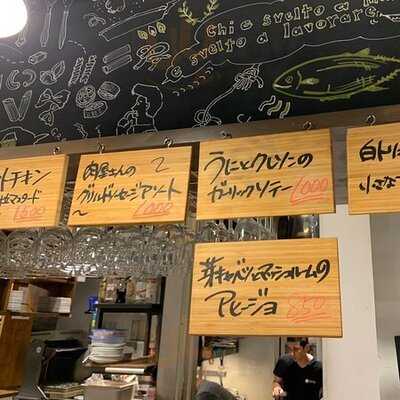 Chi è svelto a
è svelto a lavorare
トチキン
粒マスタード
1,500
肉屋さんの
グリルソーセージアソート
1,000
うにとクレソンの
ガーリックソテー 1,000
芽キャベツとマッシュルームの
アヒージョ 850